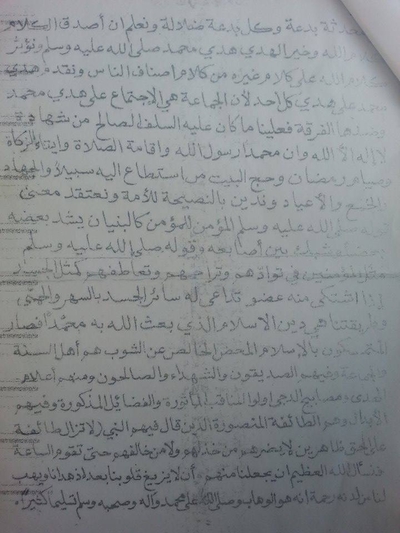 محدثة بدعة وكل بدعة ضلالة ونعلم ان أصدق الكلام
كلام الله وخير الهدي هدي محمد صلى الله عليه وسلم ونؤثر
كلام الله على كلام غيره من كلام اصناف الناس ونقدم هدي
محمد على هدي كل احد لأن الجماعة هي الإجتماع على هدي محمد
وضدها الفرقة فعلينا ما كان عليه السلف الصالح من شهادة
لا اله الا الله وان محمدا رسول الله واقامة الصلاة وايتاء الزكاة
وصيام رمضان وحج البيت من استطاع اليه سبيلا والجهاد
والجمع والأعياد وندين بالنصيحة للأمة ونعتقد معنى
قوله صلى الله عليه وسلم المؤمن للمؤمن كالبنيان يشد بعضه
بعضا وشبك بين أصابعه وقوله صلى الله عليه وسلم
مثل المؤمنين في توادهم وتراحمهم وتعاطفهم كمثل الجسد
إذا اشتكى منه عضو تداعى له سائر الجسد بالسهر والحمى
وطريقتنا هي دين الاسلام الذي بعث الله به محمدا فصار
المتمسكون بالإسلام المحض الخالص عن الشوب هم أهل السنة
والجماعة وفيهم الصديقون والشهداء والصالحون ومنهم أعلام
الهدى ومصابيح الدجى أولوا المناقب المأثورة والفضائل المذكورة وفيهم
الأبدال وهم الطائفة المنصورة الذين قال فيهم النبي (لا تزال طائفة
على الحق ظاهرين لا يضرهم من خذلهم ولا من خالفهم حتى تقوم الساعة
فنسأل الله العظيم ان يجعلنا منهم وأن لا يزيغ قلوبنا بعد اذ هدانا ويهب
لنا من لدنه رحمة انه هو الوهاب وصلى الله على محمد وآله وصحبه وسلم تسليما كثيرا